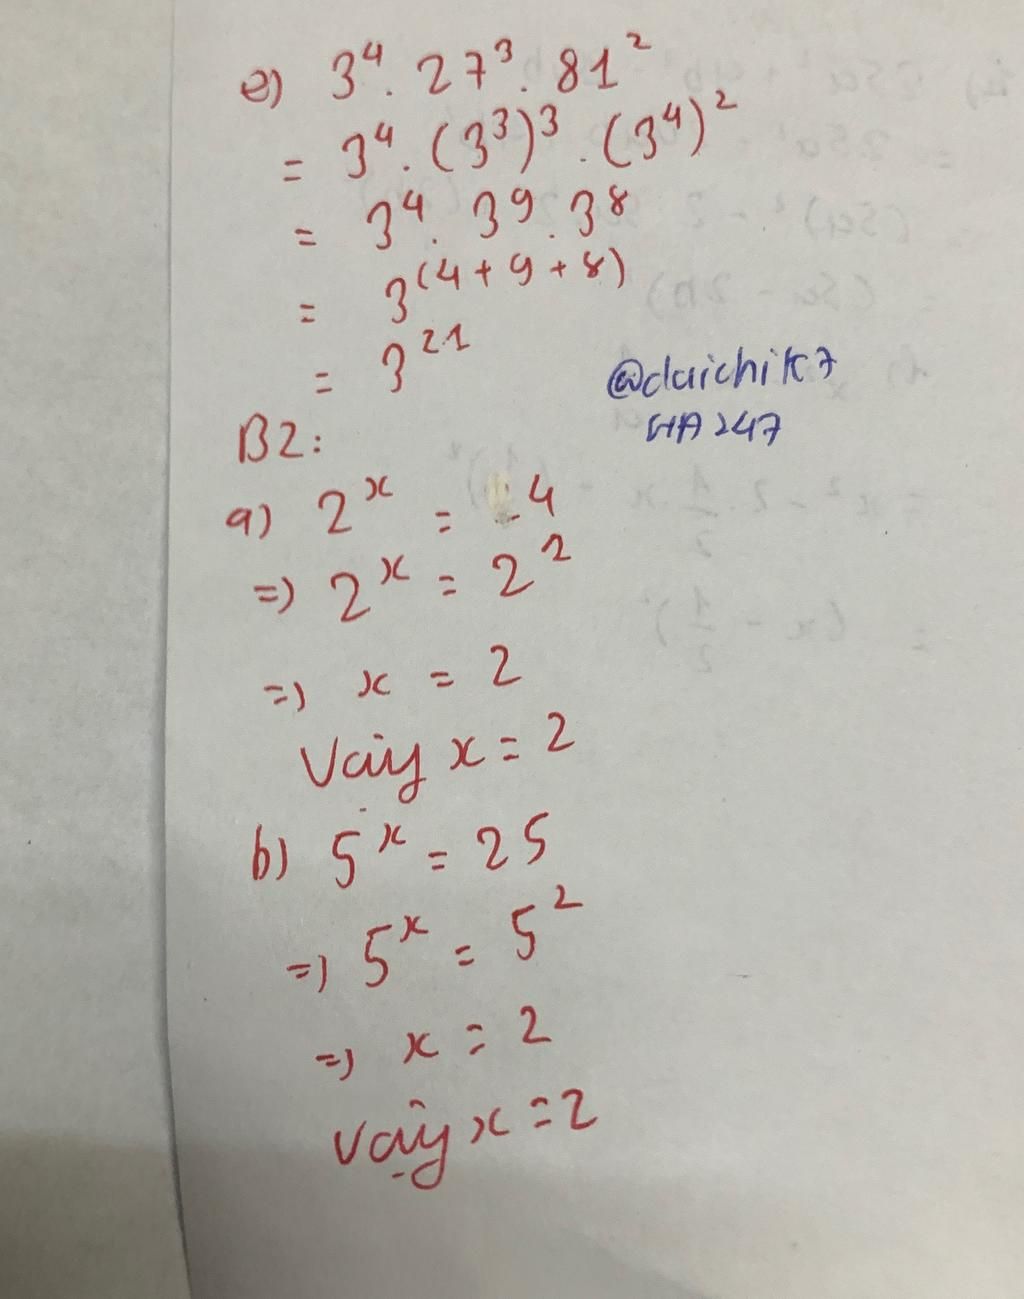 e) 3⁴ . 27³ . 81²
= 3⁴ . (3³)³ . (3⁴)²
= 3⁴ . 3⁹ . 3⁸
= 3⁽⁴⁺⁹⁺⁸⁾
= 3²¹
@daichik7
HA247
B2:
a) 2ˣ = 4
=) 2ˣ = 2²
=) x = 2
Vậy x = 2
b) 5ˣ = 25
=) 5ˣ = 5²
=) x = 2
Vậy x = 2